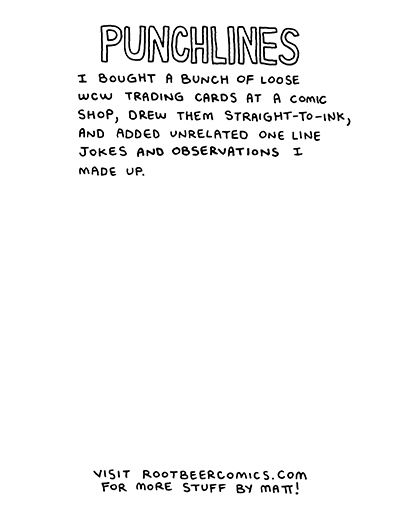 PUNCHLINES
I BOUGHT A BUNCH OF LOOSE
WCW TRADING CARDS AT A COMIC
SHOP, DREW THEM STRAIGHT-TO-INK,
AND ADDED UNRELATED ONE LINE
JOKES AND OBSERVATIONS I
MADE UP.
VISIT ROOTBEERCOMICS.COM
FOR MORE STUFF BY MATT!